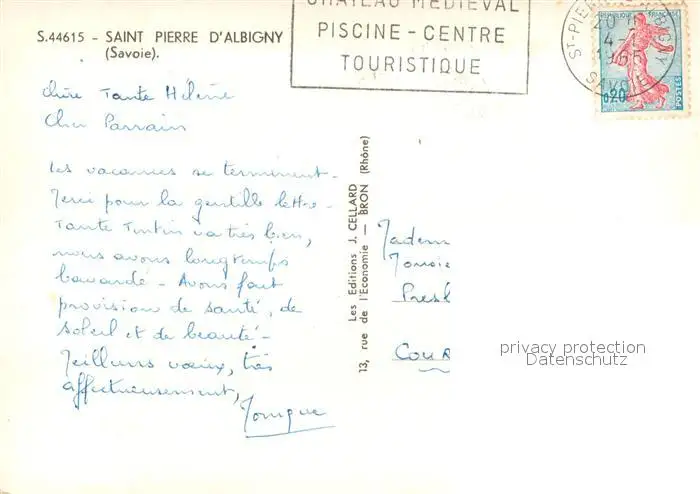 S.44615 - SAINT PIERRE D'ALBIGNY
(Savoie).
CHATEAU MEDIEVAL
PISCINE - CENTRE
TOURISTIQUE
20 H
4-
1965
SAVOIE
REPUBLIQUE FRANÇAISE
0,20
POSTES
Chère Tante Hélène
Cher Parrain
Les vacances se terminent -
Merci pour la gentille lettre -
Tante Tintin va très bien,
nous avons longtemps
bavardé - Avons fait
provision de santé, de
soleil et de beauté -
Meilleurs vœux, très
affectueusement,
Monique
Les Editions J. CELLARD
13, rue de l'Economie — BRON (Rhône)
Madem
Presl
COUR
privacy protection
Datenschutz